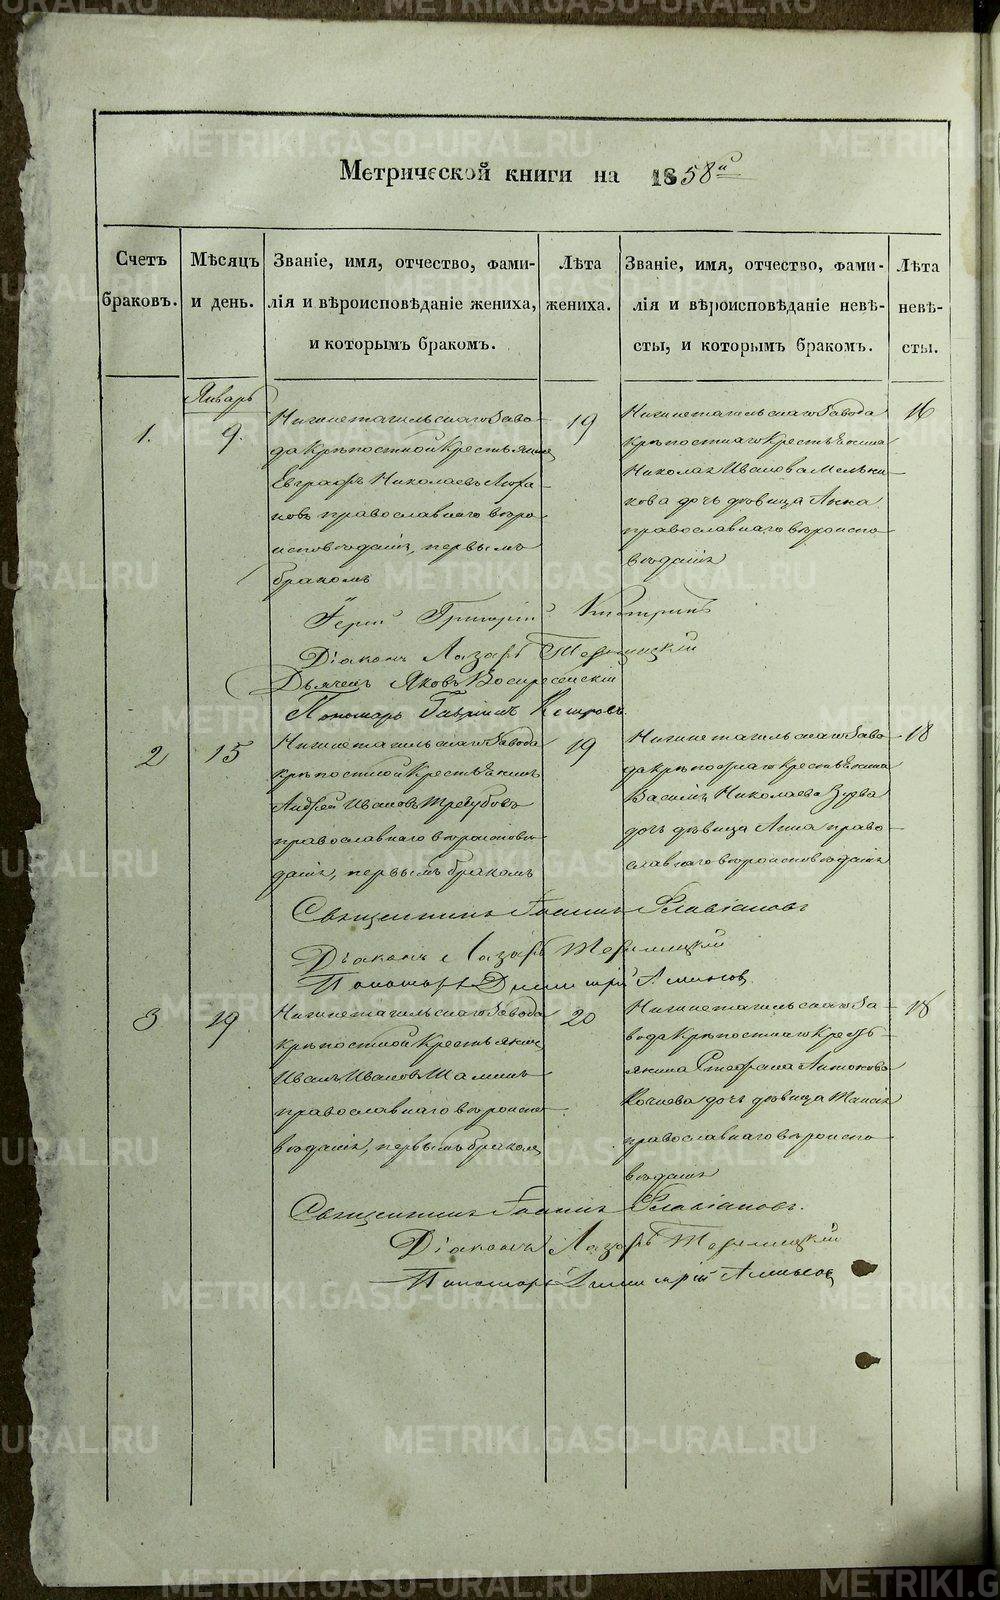 Метрической книги на 1858й
Счетъ браковъ.
Мѣсяцъ и день.
Званіе, имя, отчество, фами-
лія и вѣроисповѣданіе жениха,
и которымъ бракомъ.
Лѣта жениха.
Званіе, имя, отчество, фами-
лія и вѣроисповѣданіе невѣ-
сты, и которымъ бракомъ.
Лѣта невѣ-
сты.
Январь
1.
9.
Нижнетагильскаго Заво-
да Крѣпостной Крестьянинъ
Евграфъ Николаевъ
православнаго вѣро-
исповѣданія, первымъ
бракомъ
19
Нижнетагильскаго Завода
Крѣпостнаго Крестьянина
Николая Иванова Мельни-
кова дочь дѣвица Анна
православнаго вѣроиспо-
вѣданія
16
Іерей Григорій
Діаконъ Лазарь
Дьячекъ Яковъ Воскресенскій
Пономарь Гавріилъ
2
15
Нижнетагильскаго Завода
крѣпостной Крестьянинъ
Андрей Ивановъ Трегубовъ
православнаго вѣроисповѣ-
данія, первымъ бракомъ
19
Нижнетагильскаго Заво-
да Крѣпостнаго Крестьянина
Василія Николаева
дочь дѣвица Анна право-
славнаго вѣроисповѣданія
18
Священникъ Іоаннъ Флавіановъ
Діаконъ Лазарь
Пономарь Димитрій
3
19
Нижнетагильскаго Завода
крѣпостной Крестьянинъ
Иванъ Ивановъ Шаминъ
православнаго вѣроиспо-
вѣданія, первымъ бракомъ
20
Нижнетагильскаго За-
вода Крѣпостнаго Кресть-
янина Стефана Антонова
дочь дѣвица Таисія
православнаго вѣроиспо-
вѣданія
18
Священникъ Іоаннъ Флавіановъ.
Діаконъ Лазарь
Пономарь Димитрій
METRIKI.GASO-URAL.RU